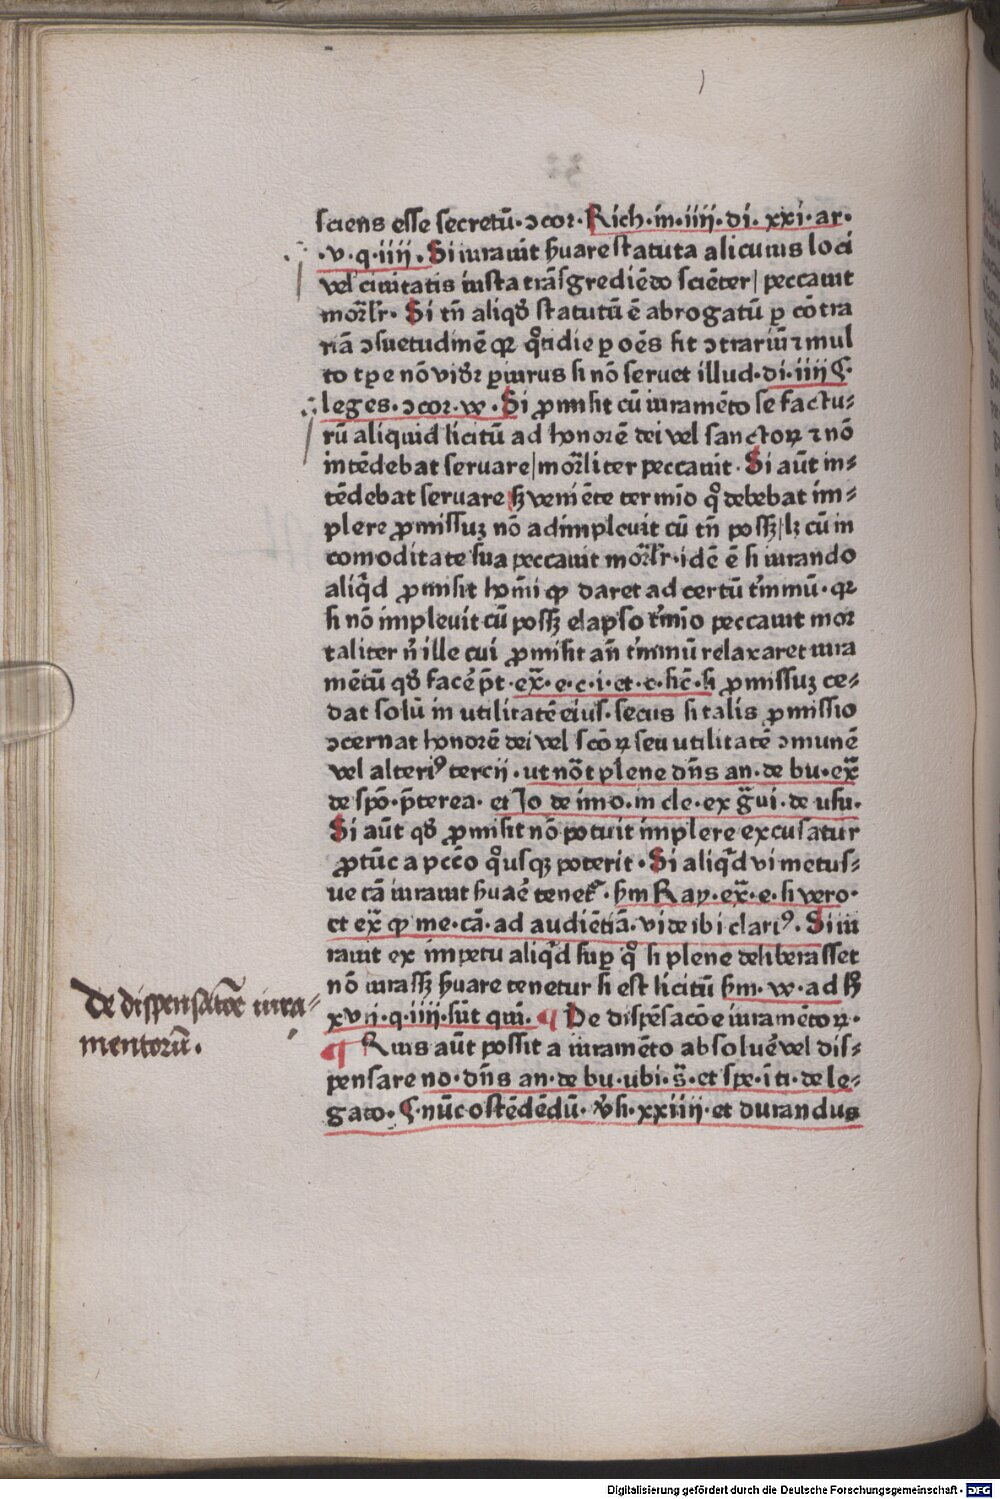 sciens esse secretū· ꝯcor· Rich· in· iiij· di· xxi· ar·
·v· q· iiij · Si iurauit ẜuare statuta alicuius loci
vel ciuitatis iusta trāsgrediēdo sciēter / peccauit
mor̄lr̄· Si tn̄ aliqḋ statutū ē abrogatū ꝑ cōtra
riā ꝯsuetudinē qꝛ q̊tidie ꝑ oēs fit ꝯtrariū ⁊ mul
to tꝑe nō videꝛ ꝑiurus si nō seruet illud· di· iiij §·
leges· ꝯcor· w· Si ꝓmisit cū iuramēto se factu⸗
rū aliquid licitū ad honorē dei vel sanctoꝝ ⁊ nō
intēdebat seruare / mor̄liter peccauit· Si aūt in⸗
tēdebat seruare sꝫ veniēte termīo q̊ debebat im⸗
plere ꝓmissuꝫ nō adimpleuit cū tn̄ possꝫ / lꝫ cū in
comoditate sua peccauit mor̄lr̄· idē ē si iurando
aliq̄d ꝓmisit hoīi ꝙ daret ad certū t̓minū· qꝛ
si nō impleuit cū possꝫ elapso t̓mīo peccauit mor
taliter n̓ ille cui ꝓmisit an̄ t̓minū relaxaret iura
mētū qḋ facē pt̄· ex̄· e· c· i· et· c· sic̄· si ꝓmissuꝫ ce⸗
dat solū in utilitatē eius· secus si talis ꝓmissio
ꝯcernat honorē dei vel scōꝝ seu utilitatē ꝯmunē
vel alteriꝰ tercij · ut nōt plene dn̄s an· de bu· ex̄
de spō· p̄terea· et Jo de imo· in cle· ex g̊ui· de usu·
Si aūt qḋ ꝓmisit nō potuit implere excusatur
ꝓtūc a pccō q̊usqꝫ poterit· Si aliq̄d vi metus⸗
ue cā iurauit ẜuaē tenetꝛ· ẜm Ray· ex̄· e· si vero·
et ex̄ ꝙ me· cā· ad audiētiā· vide ibi clariꝰ· Si iu
rauit ex impetu aliq̄d suꝑ q̊ si plene deliberasset
nō iurassꝫ ẜuare tenetur si est licitū ẜm· w· ad h̄
xvij· q· iiij· sūt qui· ¶ De dispēsacōe iuramētoꝝ·
¶ Quis aūt possit a iuramēto absoluē vel dis⸗
pensare no· dn̄s an· de bu· ubi· s̄· et spe· ī ti· de le⸗
gato· §· nūc ostēdēdū· v̓si· xxiiij· et durandus
De dispensatōe iura⸗
mentorū·
Digitalisierung gefördert durch die Deutsche Forschungsgemeinschaft - DFG